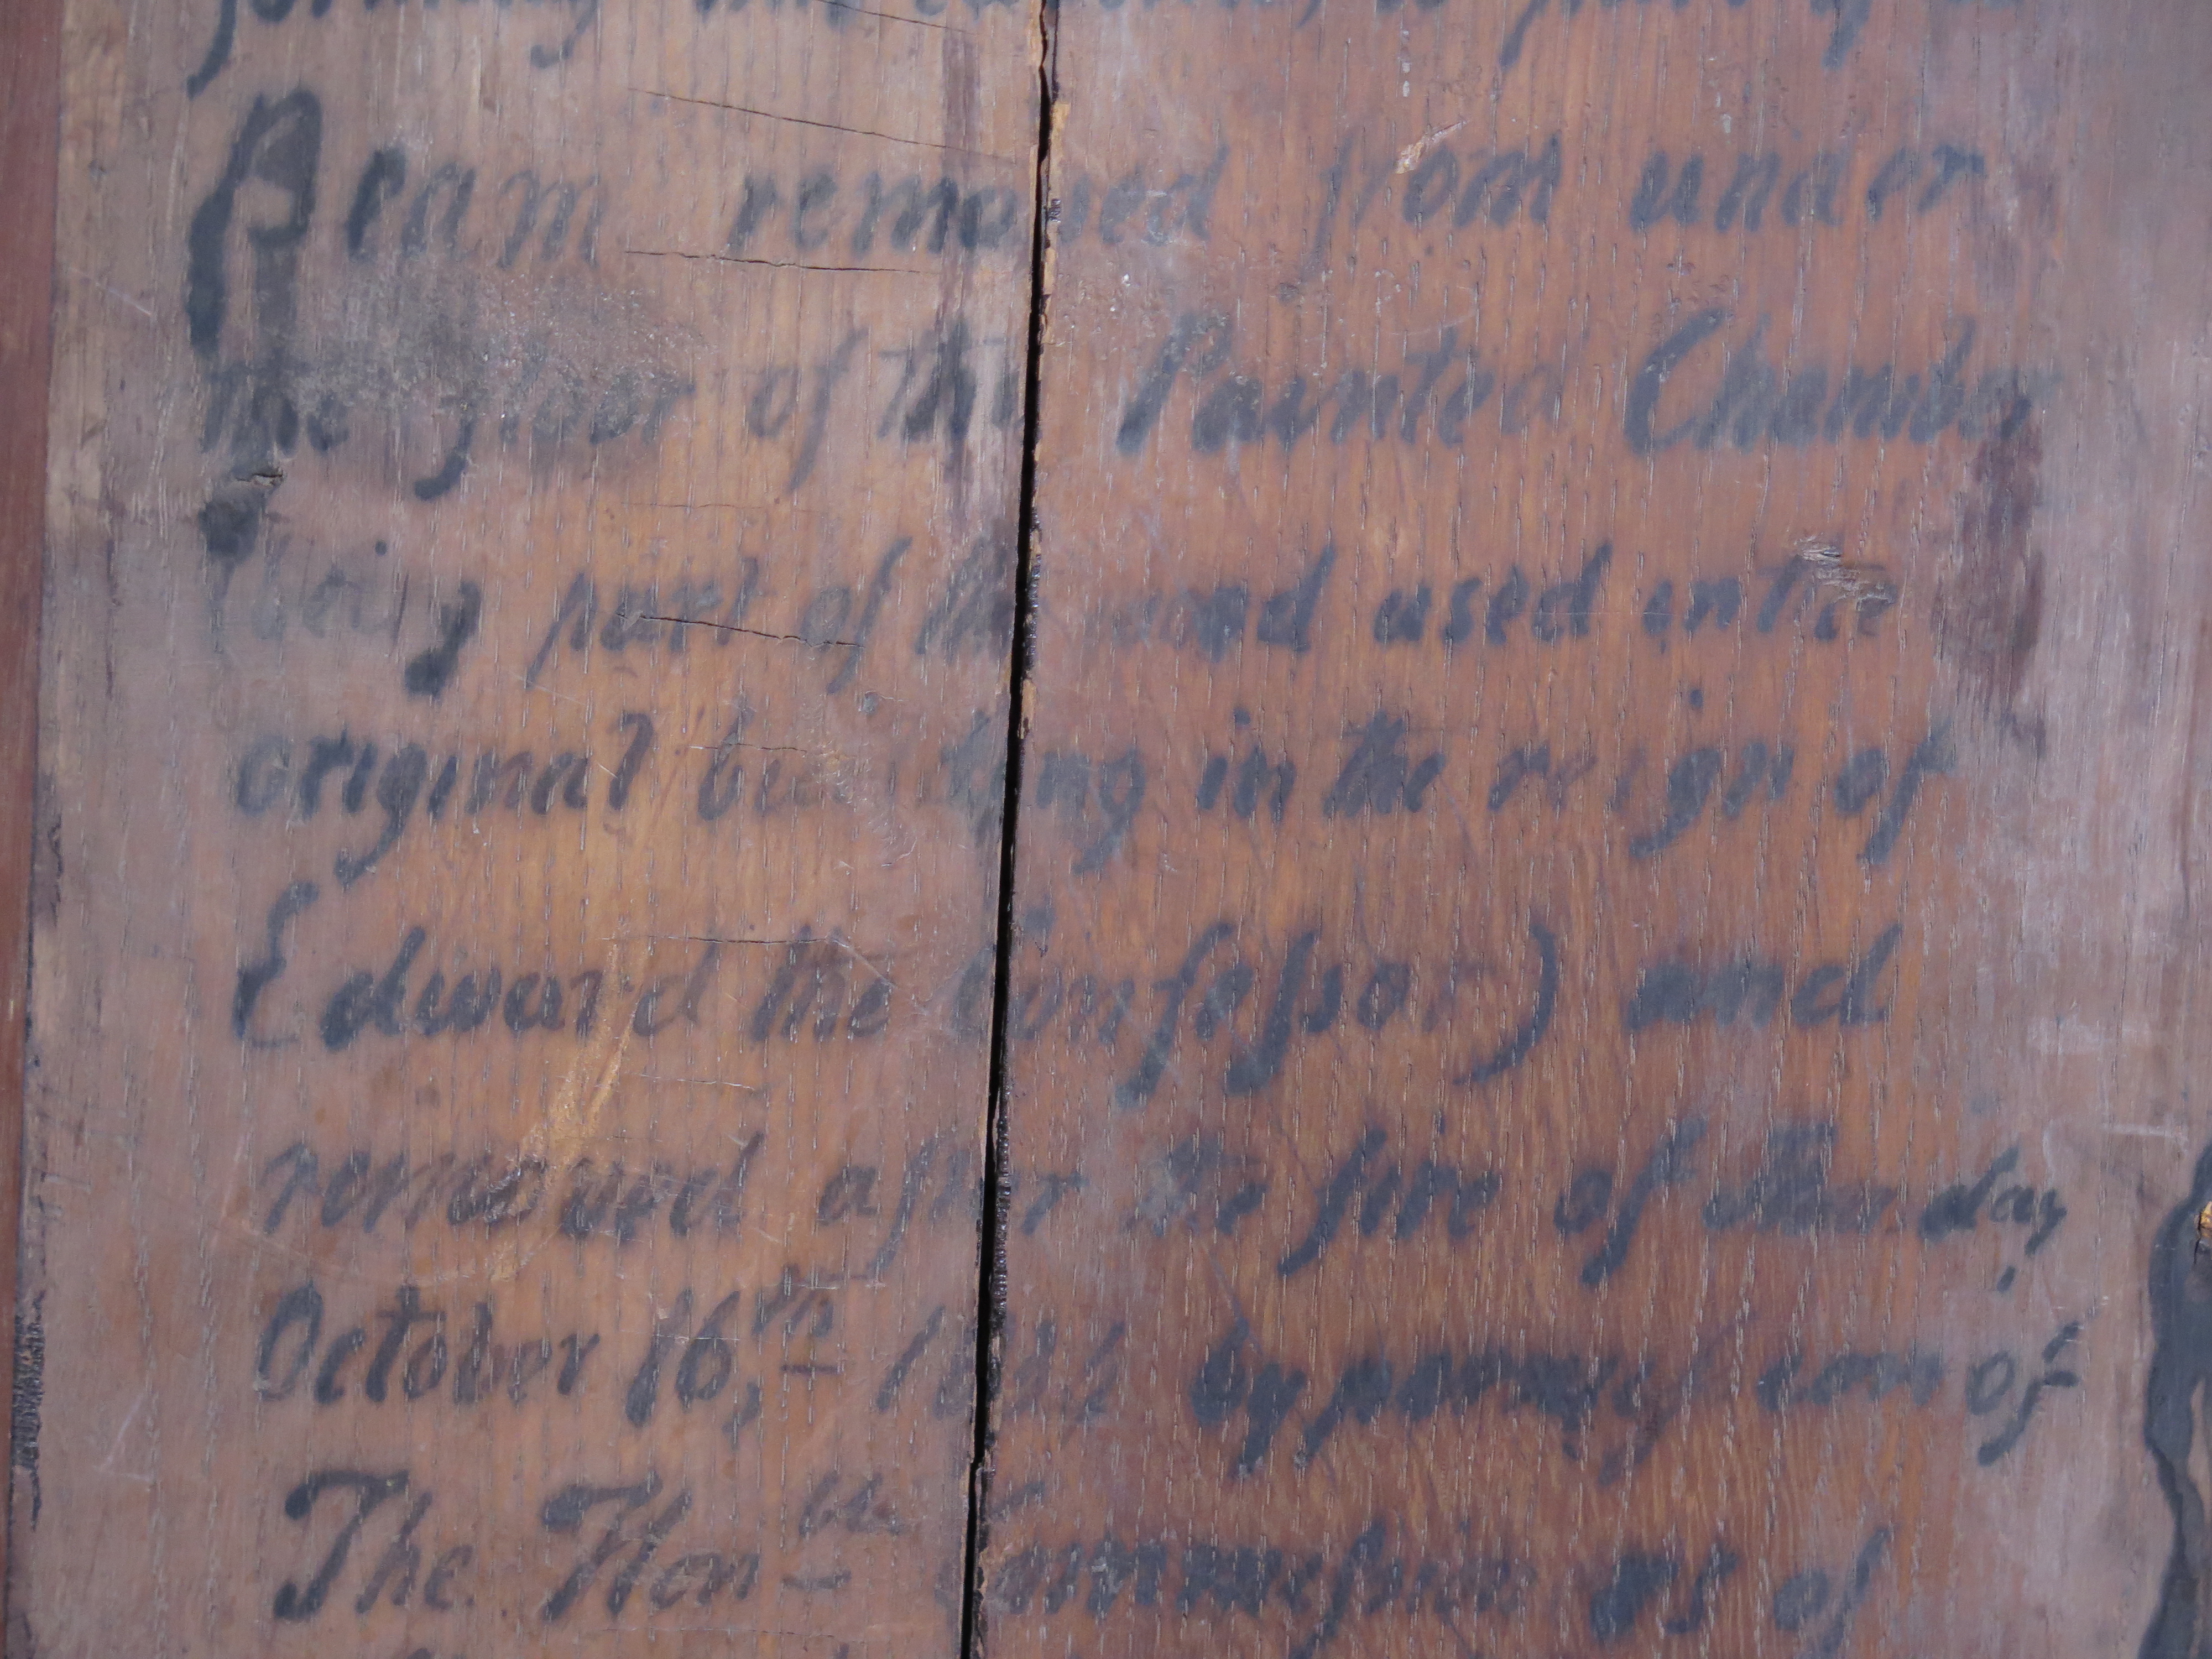 Beam removed from under
the floor of the Painted Chamber
(being part of the wood used in the
original building in the reign of
Edward the Confessor) and
removed after the fire of day
October 16th, 1834 by permission of
The Honble Commissioners of